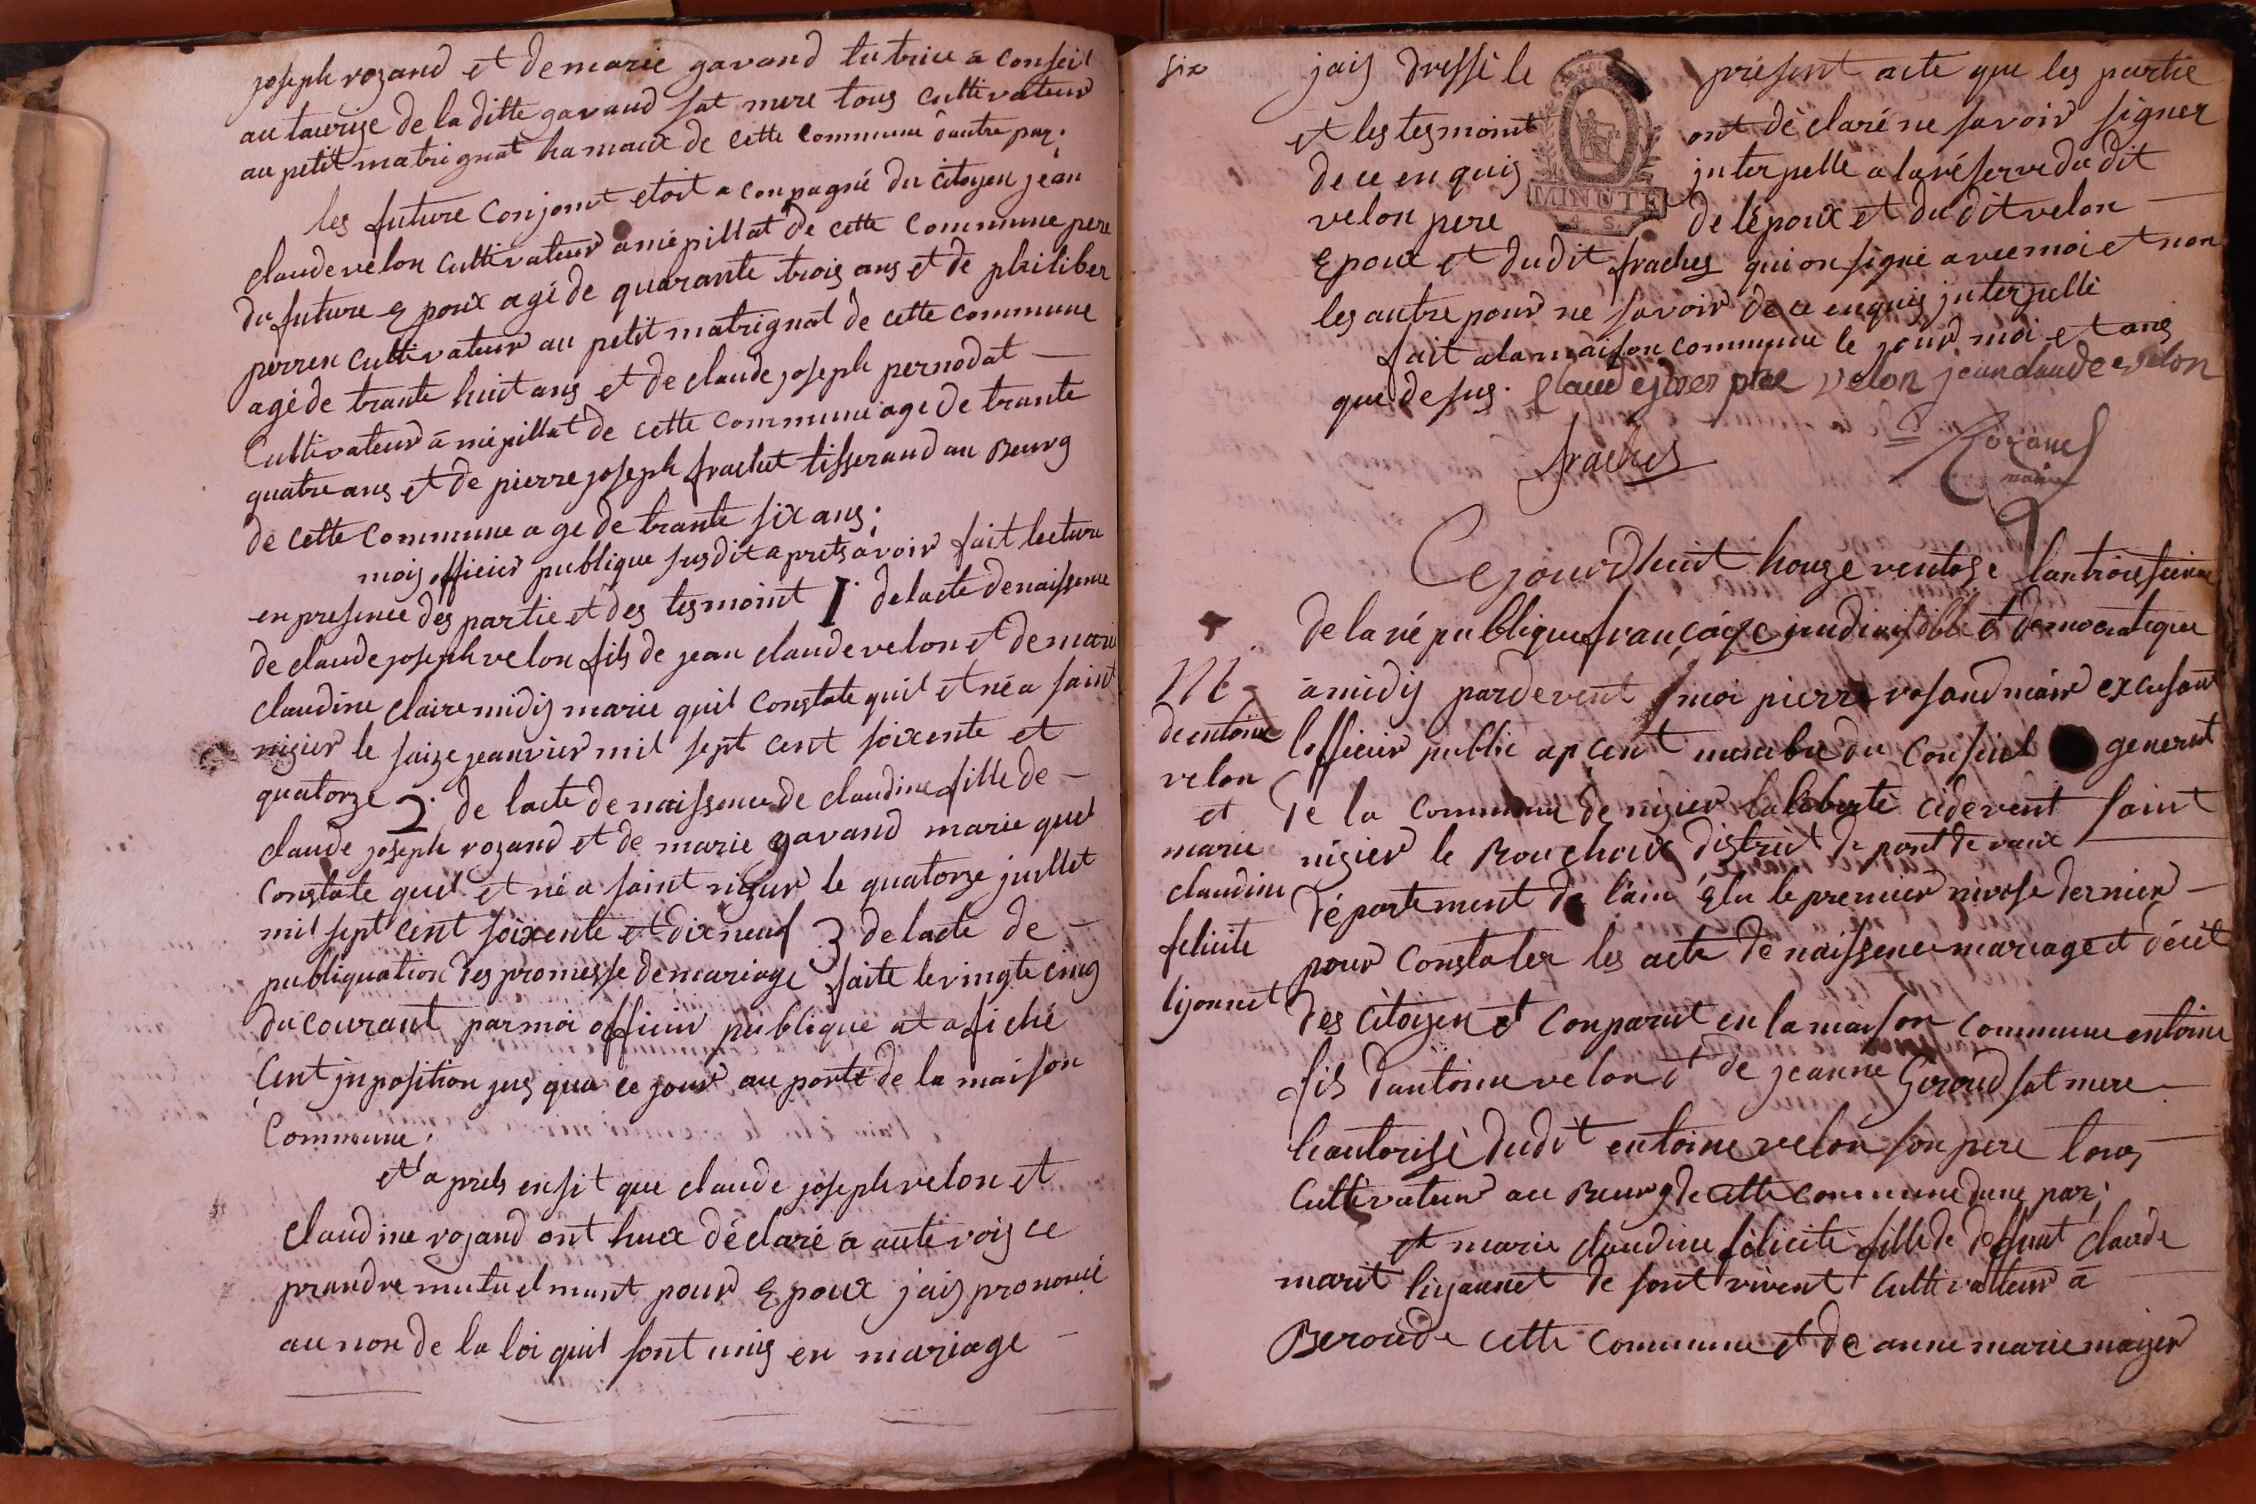 joseph rozand et de marie gavand tutrice a conseil
autaurize de la ditte gavand sat mere tous cultivateur
au petit matrignat hamaux de cette commune dautre par.
les future conjoint etoit a conpagné du citoyen jean
claude velon cultivateur a mépillat de cette commune pere
du future epoux agé de quarante trois ans et de philiber
perren cultivateur au petit matrignat de cette commune
agé de trante huit ans et de claude joseph pernodat
Cultivateur a mépillat de cette commune age de trante
quatre ans et de pierre joseph frachet tisserand au Beurg
de cette commune age de trante six ans.
mois officier publique susdit aprets avoir fait lecture
en presence des partie et des tesmoint 1. de lacte de naissence
de claude joseph velon fils de jean claude velon et de marie
claudine claire midis marie quil constate quil et né a saint
nizier le saize jeanvier mil sept cent soixente et
quatorze 2. de lacte de naissence de claudine fille de
claude joseph rozand et de marie gavand marie quel
constate quel et né a saint nizier le quatorze juillet
mil sept cent soixente et dix neuf 3 de lacte de
publiquation des promesse de mariage faite le vingte cinq
du courant par moi officier publique at afiché
cent jnposition jus qua ce jour au porte de la maison
Commune.
et a prets ensit que claude joseph velon et
claudine rozand ont heux déclaré a aute vois ce
prandre mutuelmant pour Epoux jais prononcé
au non de la loi quil sont unis en mariage
six
jais dressé le présent acte que les partie
et les tesmoint ont déclaré ne savoir signer
de ce enquis jnterpelle a la réserve du dit
velon pere de lépoux et du dit velon
MINUTE
4 S
Epoux et du dit frachet qui on signé avec moi et non
les autre pour ne savoir de ce enquis jnterpellé
fait a la maison commune le jour moi et ans
que de sus. velon jean claude velon
frachet Rozand
maire
Ce jourdhuit honze ventose lan troissieme
de la république françaize jndivisible et democratique
a midis pardevent moi pierre rosand maire excusant
lofficier public apcent membre du conseil general
de la commune de nizier la liberté cidevent saint
nizier le Bouchoux district de pont de vaux
département de lain Elu le premier nivose dernier
pour constater les acte de naissence mariage et décét
des citoyen et conparut en la maison commune entoine
fils dantoine velon et de jeanne Giroud sat mere
hautorisé dudit entoine velon son pere tous
cultivateur au Beurg de cette commune dune par;
et marie claudine félicité fille de deffunt claude
marit lijonnet de sont vivent cultivatteur a
Beroude cette commune et de anne marie mayer
M
de entoine
velon
et
marie
claudine
felicite
lijonnet